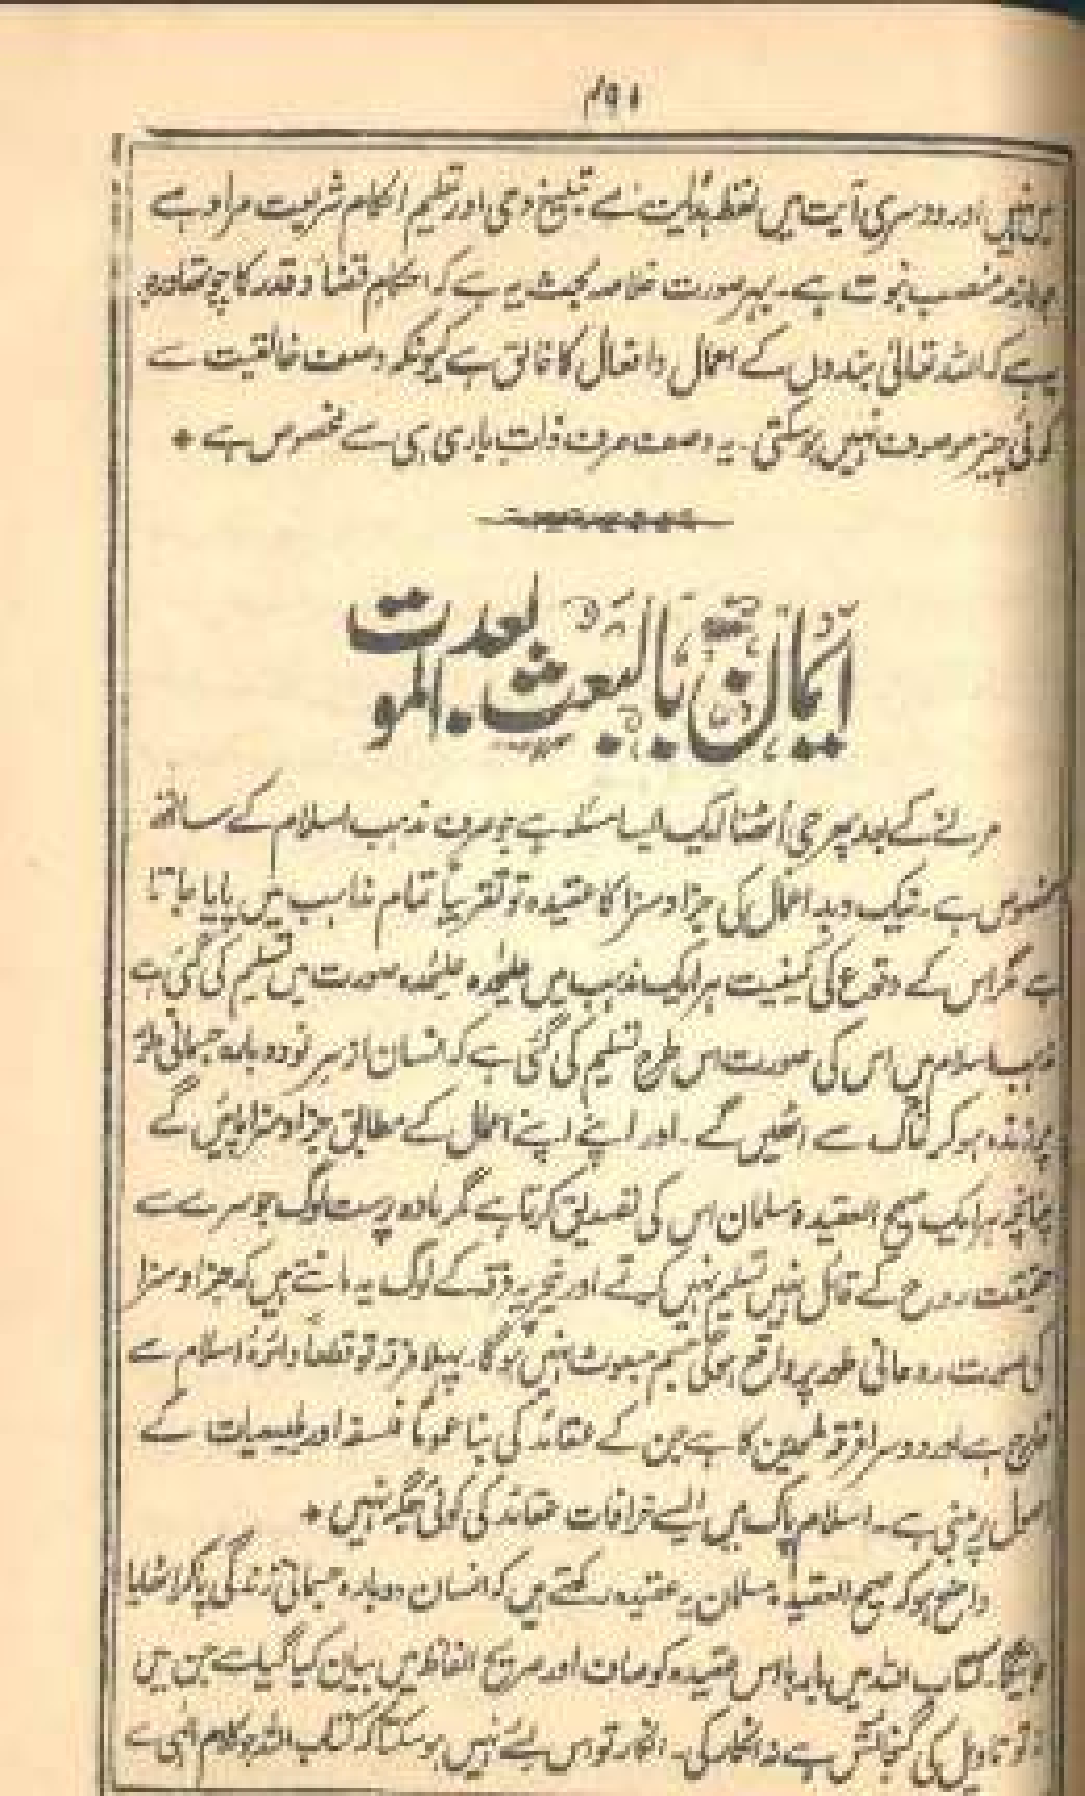 اور دوسری آیت میں لفظ ہدایت سے تبلیغ وحی اور تعلیم احکام شریعت مراد ہے
منصب نبوت ہے۔ بہر صورت خلاصہ بحث یہ ہے کہ احکام قضا و قدر کا جو تھا وہ
یہ ہے کہ اللہ تعالیٰ بندوں کے اعمال و افعال کا خالق ہے کیونکہ وصف خالقیت سے
کوئی چیز موصوف نہیں ہوسکتی۔ یہ وصف صرف ذات باری ہی سے مخصوص ہے ٭
ایمان بالبعث بعد الموت
مرنے کے بعد پھر جی اُٹھنا ایک ایسا مسئلہ ہے جو صرف مذہب اسلام کے ساتھ
مخصوص ہے۔ نیک و بد اعمال کی جزا و سزا کا عقیدہ تو تقریباً تمام مذاہب میں پایا جاتا
ہے مگر اس کے وقوع کی کیفیت ہر ایک مذہب میں علیحدہ علیحدہ صورت میں تسلیم کی گئی ہے
مذہب اسلام میں اس کی صورت اس طرح تسلیم کی گئی ہے کہ انسان از سر نو دوبارہ جسمانی طور
پر زندہ ہو کر خاک سے اٹھیں گے۔ اور اپنے اپنے اعمال کے مطابق جزا و سزا پائیں گے
چنانچہ ہر ایک صحیح العقیدہ مسلمان اس کی تصدیق کرتا ہے مگر مادہ پرست لوگ جو سرے سے
حقیقت روح کے قائل نہیں تسلیم نہیں کرتے اور نیچریہ فرقہ کے لوگ یہ مانتے ہیں کہ جزا و سزا
کی صورت روحانی طور پر واقع ہوگی جسم مبعوث نہیں ہوگا۔ پہلا فرقہ تو قطعاً دائرۂ اسلام سے
خارج ہے اور دوسرا فرقہ ملحدین کا ہے جن کے عقائد کی بنا عموماً فلسفہ اور طبیعیات کے
اصول پر مبنی ہے۔ اسلام پاک میں ایسے خرافات عقائد کی کوئی جگہ نہیں ٭
واضح ہو کہ صحیح العقیدہ مسلمان یہ عقیدہ رکھتے ہیں کہ انسان دوبارہ جسمانی زندگی پاکر اٹھایا
جائیگا۔ کتاب اللہ میں بارہا اس عقیدہ کو صاف اور صریح الفاظ میں بیان کیا گیا ہے جن میں
نہ تو تاویل کی گنجائش ہے نہ انکار کی۔ انکار تو اس لئے نہیں ہوسکتا کہ کتاب اللہ جو کلام الٰہی ہے